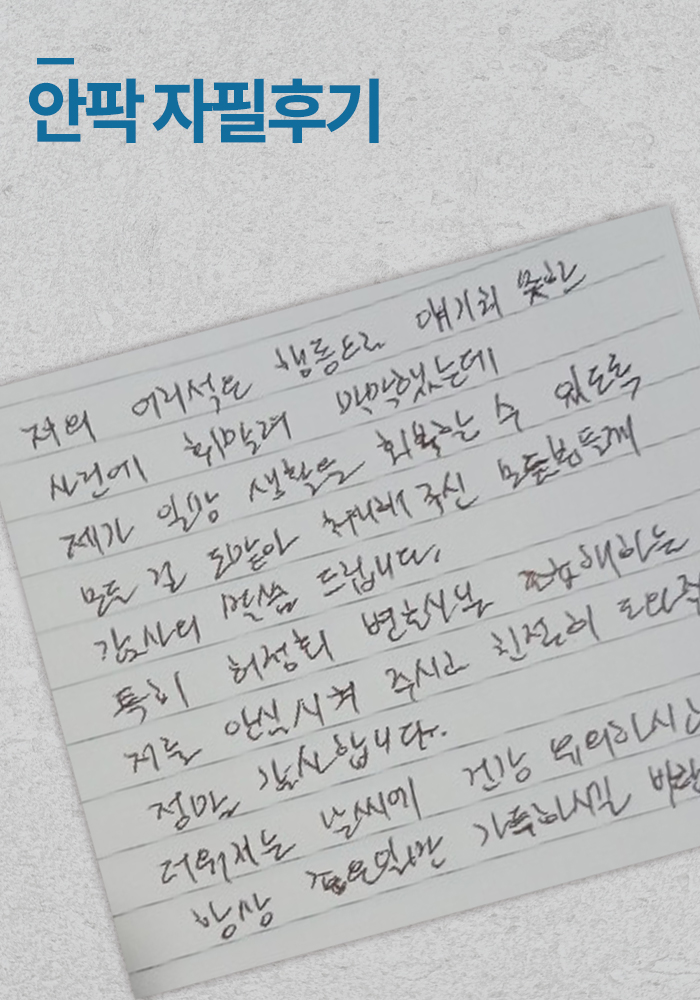 안팍 자필후기
저의 어리석은 행동으로 얘기치 못한
사건에 휘말려 막막했는데
제가 일상 생활을 회복하는 수 있도록
모든 걸 도맡아 처리해주신 모든분들께
감사의 말씀 드립니다.
특히 허정회 변호사님 해하는
저를 안심시켜 주시고 친절히
정말 감사합니다.
더워지는 날씨에 건강 유의하시고
항상 좋은일만 가득하시길